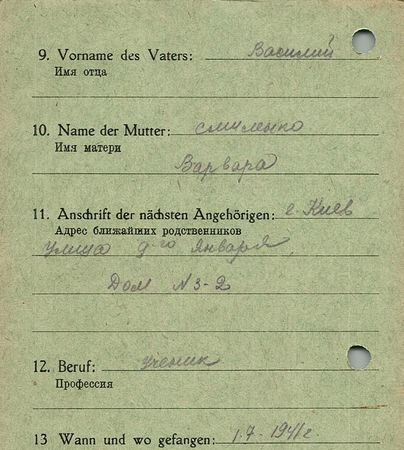 9. Vorname des Vaters: Василий
Имя отца
10. Name der Mutter: смиленко
Имя матери
Варвара
11. Anschrift der nächsten Angehörigen: г. Киев
Адрес ближайших родственников
улица 9-го Января.
Дом N 3-2
12. Beruf: ученик
Профессия
13 Wann und wo gefangen: 1.7-1941г.